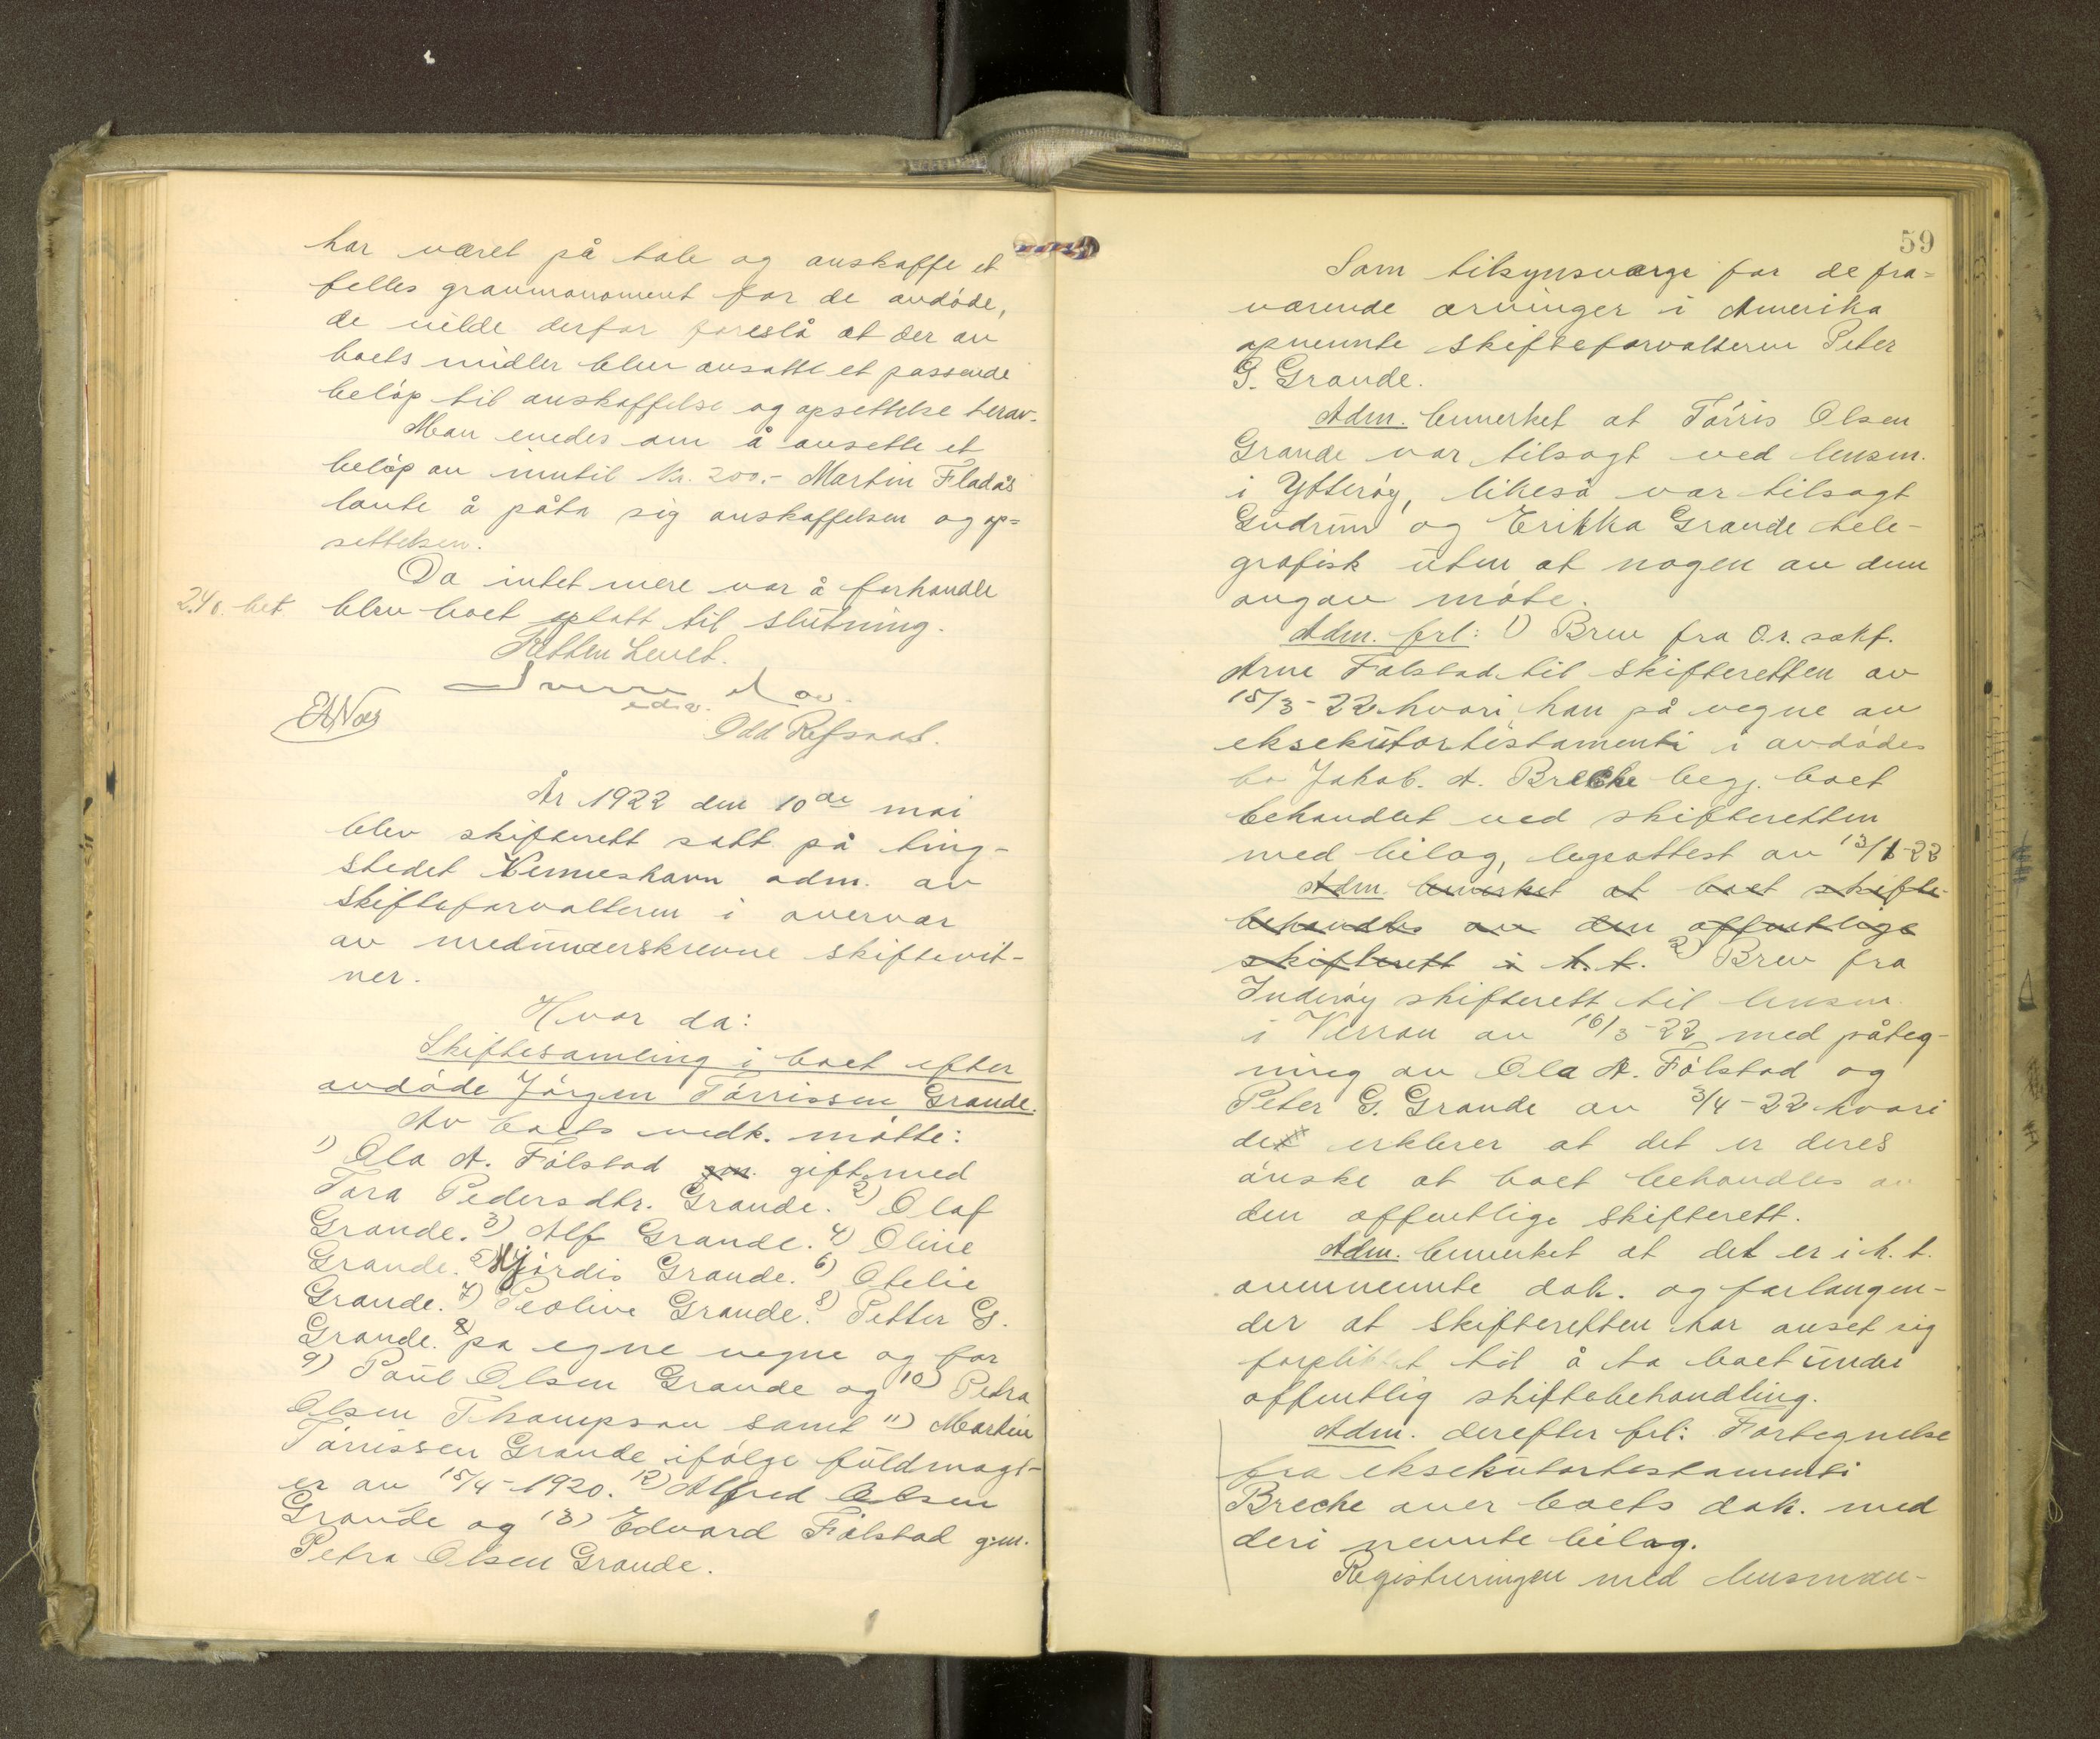 har været på tale og anskaffe et
felles gravmonoment for de avdøde,
de vilde derfor foreslå at der av
boets midler blev avsatt et passende
beløp til anskaffelse og opsettelse herav.
Man enedes om å avsette et
beløp av inntil Kr. 200.- Martin Fladås
lovte å påta sig anskaffelsen og op=
settelsen.
Da intet mere var å forhandle
2.40. bet. blev boet optatt til slutning.
Retten hevet.
Sverre
edsv.
Odd Refsnes.
År 1922 den 10de mai
blev skifterett satt på ting-
stedet Venneshavn adm. av
skifteforvalteren i overvær
av medunderskrevne skiftevit-
ner.
Hvor da:
Skiftesamling i boet efter
avdøde Jørgen Tørrissen Grande.
Av boets vedk. møtte:
1) Ola A. Følstad gm. gift med
Tora Pedersdtr. Grande. 2) Olaf
Grande. 3) Alf Grande. 4) Oline
Grande. 5) Hjørdis Grande. 6) Otelie
Grande. 7) Peoline Grande. 8) Petter G.
Grande. på egne vegne og for
9) Paul Olsen Grande og 10) Petra
Olsen Thompson samt 11) Martin
Tørrissen Grande ifølge fuldmagt-
er av 15/4-1920. 12) Alfred Olsen
Grande og 13) Edvard Følstad g.m.
Petra Olsen Grande.
59
Som tilsynsværge for de fra=
værende arvinger i Amerika
opnevnte skifteforvalteren Peter
G. Grande.
Adm. bemerket at Tørris Olsen
Grande var tilsagt ved lensm.
i Ytterøy, likeså var tilsagt
Gudrun og Erikka Grande tele-
grafisk uten at nogen av dem
avgav møte.
Adm. frl: 1) Brev fra O.r. sakf.
Arne Falstad til skifteretten av
15/3-22 hvori han på vegne av
eksekutortestamenti i avdødes
bo Jakob. A. Brecke begj. boet
behandlet ved skifteretten
med bilag, legeattest av 13/1-22
Adm. bemerket at boet skifte-
behandles av den offentlige
skifterett i h.t. 2) Brev fra
Inderøy skifterett til lensm.
i Verran av 16/3-22 med påteg-
ning av Ola A. Følstad og
Peter G. Grande av 3/4-22 hvori
de erklerer at det er deres
ønske at boet behandles av
den offentlige skifterett.
Adm. bemerket at det er i h.t.
ovennevnte dok. og forlangen-
der at skifteretten har anset sig
forpliktet til å ta boet under
offentlig skiftebehandling.
Adm. derefter frl: Fortegnelse
fra eksekutortestamenti
Brecke over boets dok. med
deri nevnte bilag.
Registreringen med lensman-